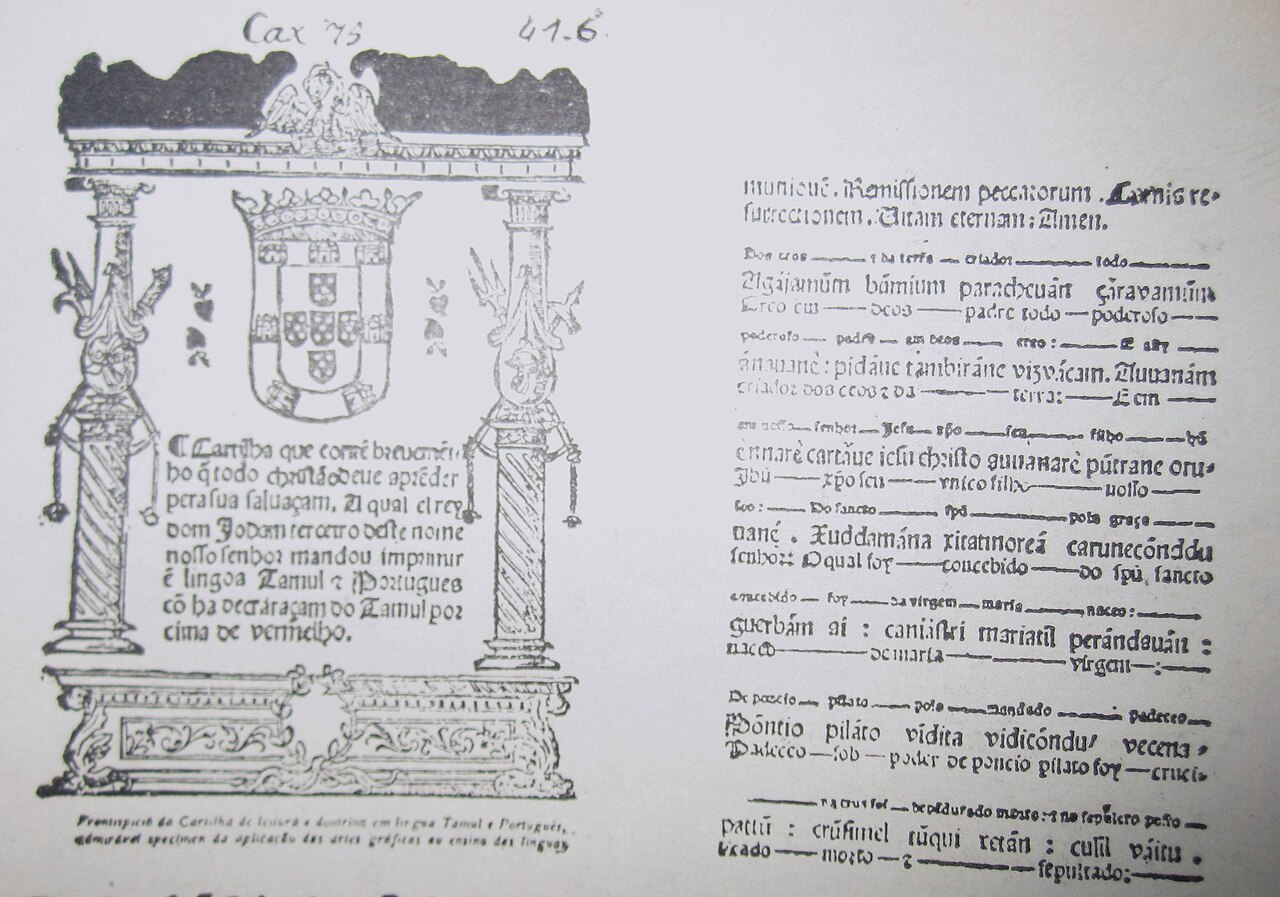 Cax 75 41-6
¶ Cartilha que contẽ breuemẽte
ho q̃ todo christão deue aprẽder
pera sua saluaçam. A qual el rey
dom Joham terceiro deste nome
nosso senhor mandou imprimir
ẽ lingoa Tamul ⁊ Portugues
cõ ha decraraçam do Tamul por
cima de vermelho.
Frontispício da Cartilha de leitura e doutrina em língua Tamul e Português,
admirável specimen da aplicação das artes gráficas ao ensino das línguas
munionẽ. Remissionem peccatorum. Carnis re-
surrectionem. Uitam eternam: Amen.
Dos ceos ⁊ da terra criador todo
Agájamũm bũmium paracheuãn çãravamũm
Creo em deos padre todo poderoso
poderoso padre em deos creo: E assy
ánauanè: pidáue támbiráne vizvácam. Auuanám
criador dos ceos ⁊ da terra: E em
em nosso senhor Jesu xp̃o seu filho hũ
ẽnnarè cartáue iesu christo auuanarè pũtrane oru-
Jhũ xp̃o seu vnico filho nosso
soo: Do sancto spũ pola graça
nanẽ. Xuddamána xitatinoreá carunecónddu
senhor: O qual foy concebido do spũ sancto
concebido foy da virgem maria naceo:
guerbám ai : caniástri mariatil perándauán :
naceo de maria virgem :
De poncio pilato polo mandado padeceo
Pôntio piláto vidita vidicóndu/ vecena-
Padeceo sob poder de poncio pilato foy cruci-
na cruz foi depẽdurado morto: ⁊ no sepulcro pósto
pattũ : crũsinel tũqui xetán : culil váitu.
ficado morto ⁊ sepultado: